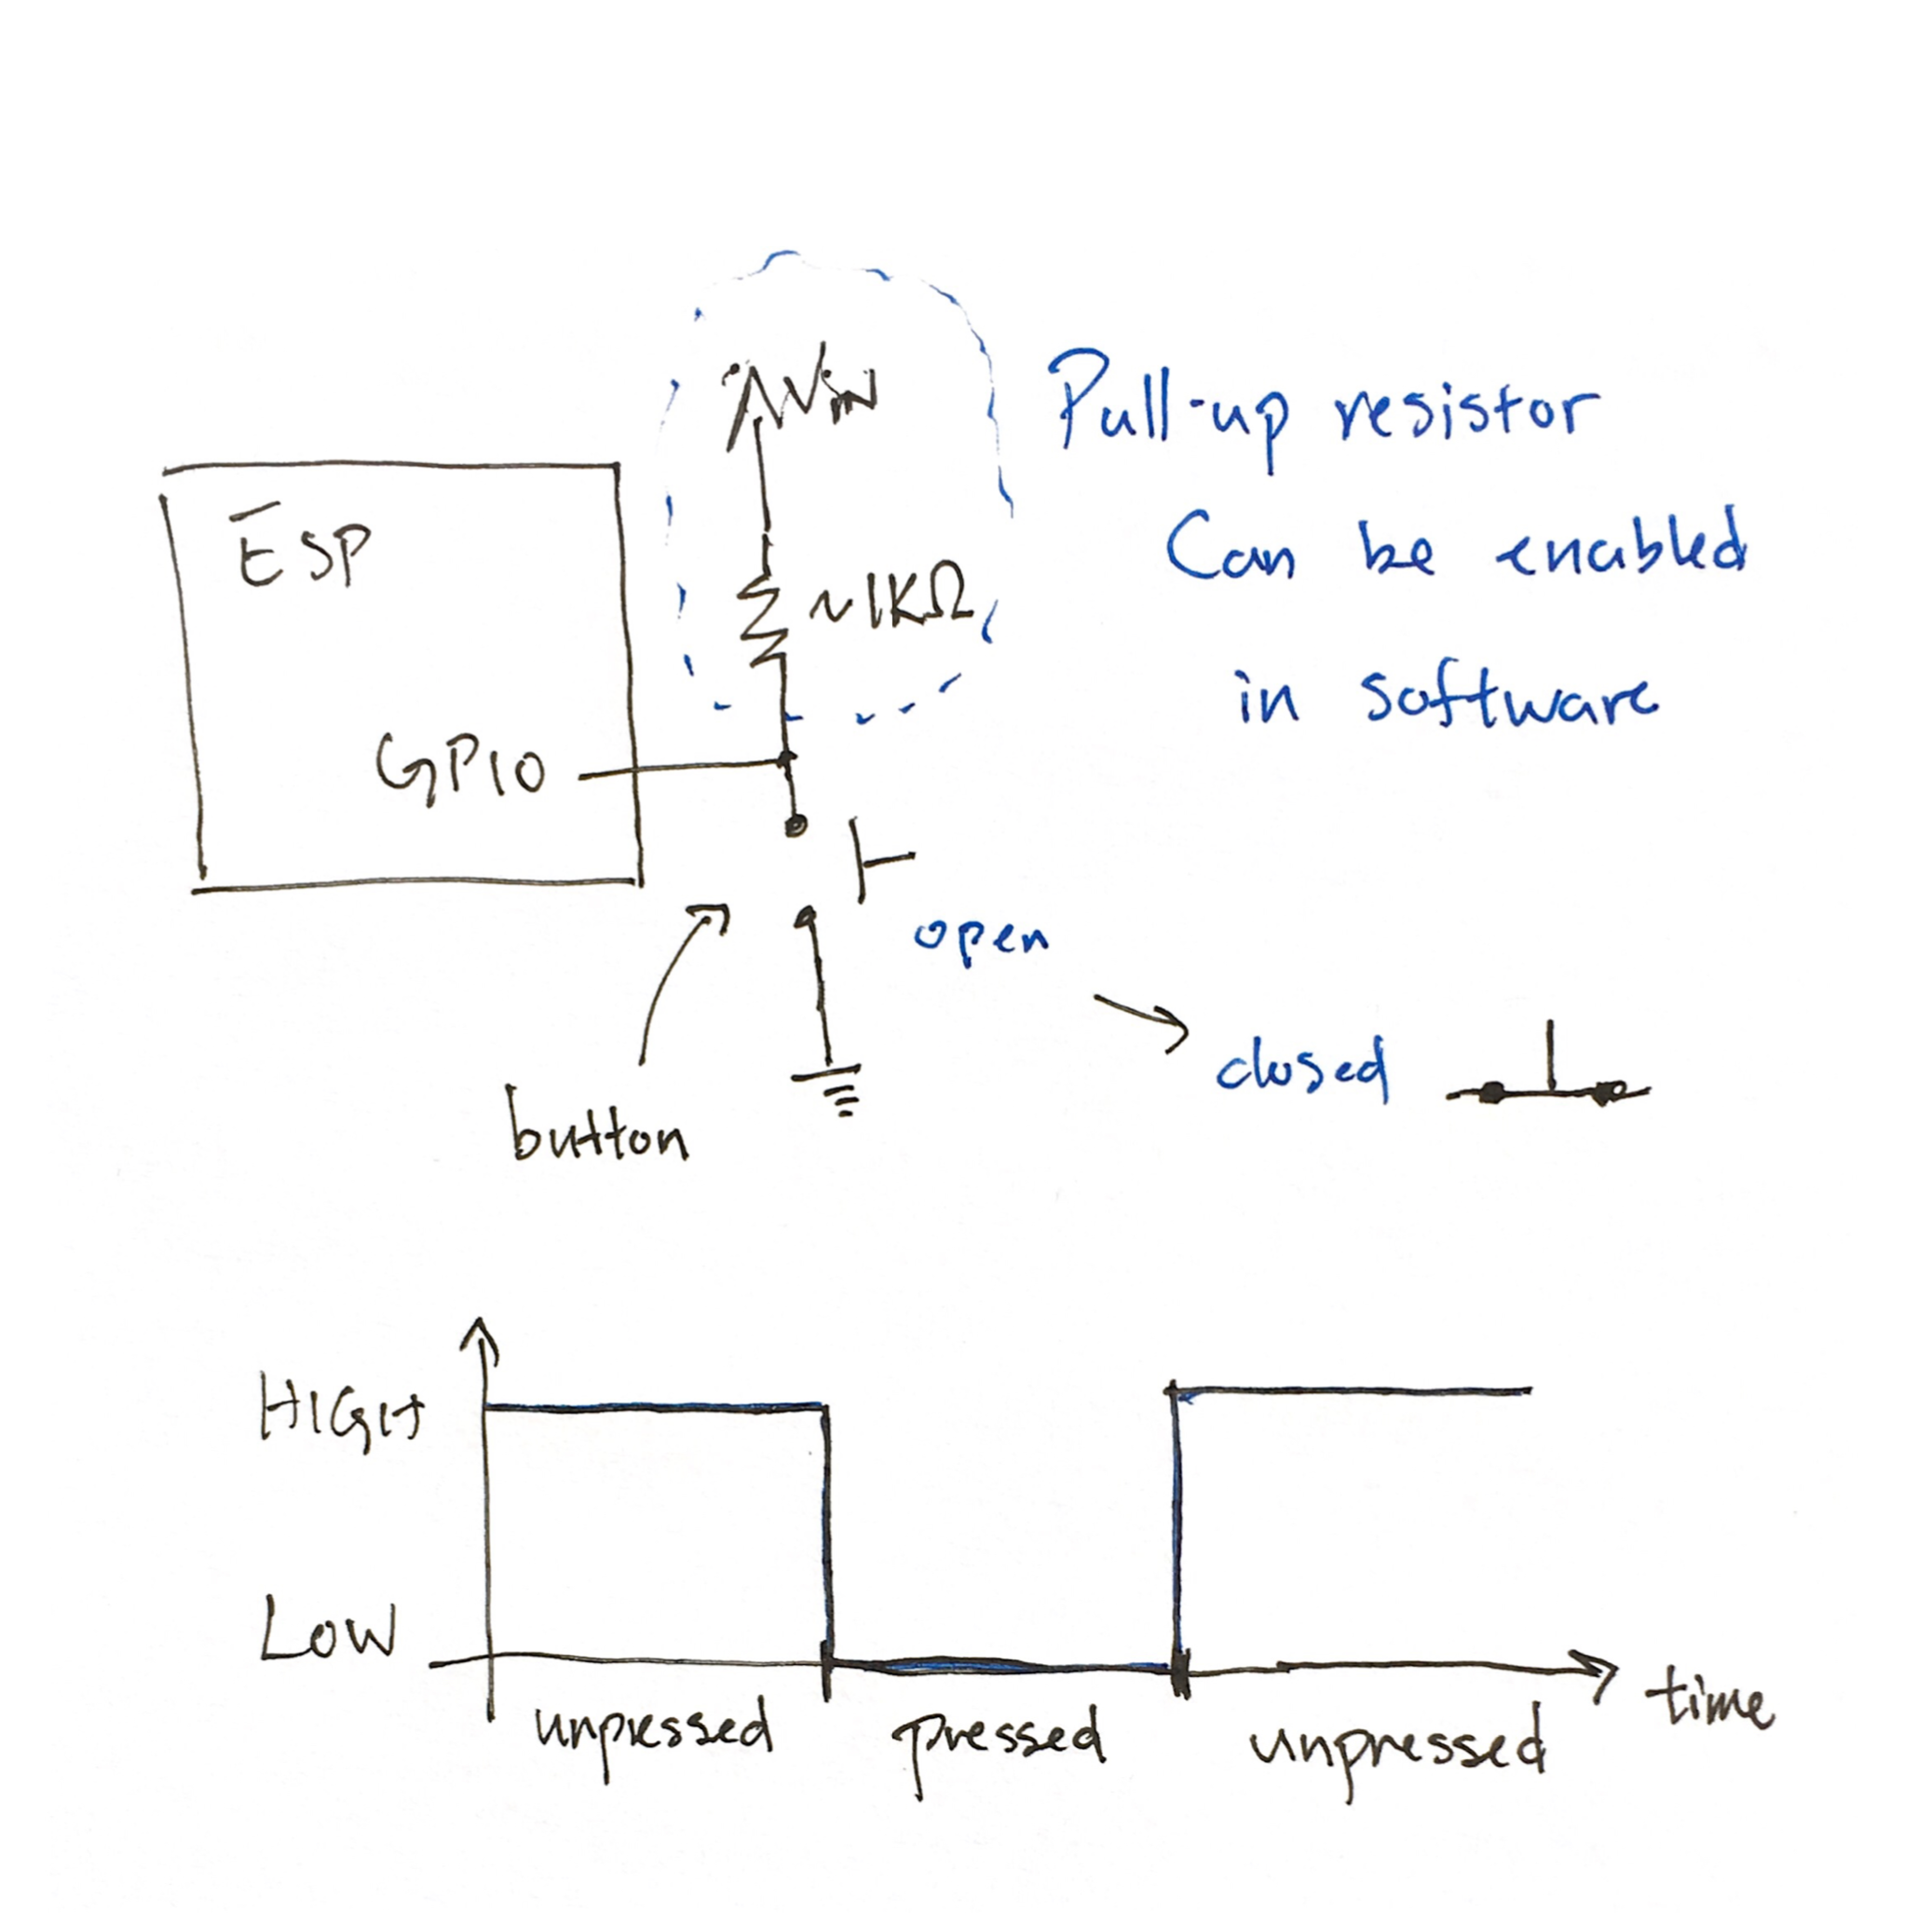 Vin
Pull-up resistor
ESP
Can be enabled
~1KΩ
in software
GPIO
open
closed
button
HIGH
LOW
time
unpressed
pressed
unpressed